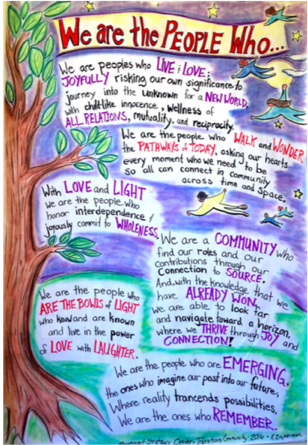 We are the PEOPLE Who...
We are peoples who LIVE & LOVE;
JOYFULLY risking our own significance to
journey into the unknown for a NEW WORLD.
with childlike innocence, wellness of
ALL RELATIONS, mutuality, and reciprocity.
We are the people who WALK and WONDER
the PATHWAYS of TODAY, asking our hearts
every moment who we need to be
So all can connect in community
across time and Space.
With LOVE and LIGHT
we are the people who
honor interdependence &
joyously commit to WHOLENESS.
We are a COMMUNITY who
find our roles and our
contributions through our
Connection to SOURCE.
And with the knowledge that we
have ALREADY WON,
we are able to look far
and navigate toward a horizon,
where we THRIVE through JOY and
CONNECTION!
We are the people who
ARE THE BOWLS of LIGHT
who know and are known
and live in the power
of LOVE with LAUGHTER.
We are the people who are EMERGING.
the ones who imagine our past into our future,
Where reality trancends possibilities,
We are the ones who REMEMBER.